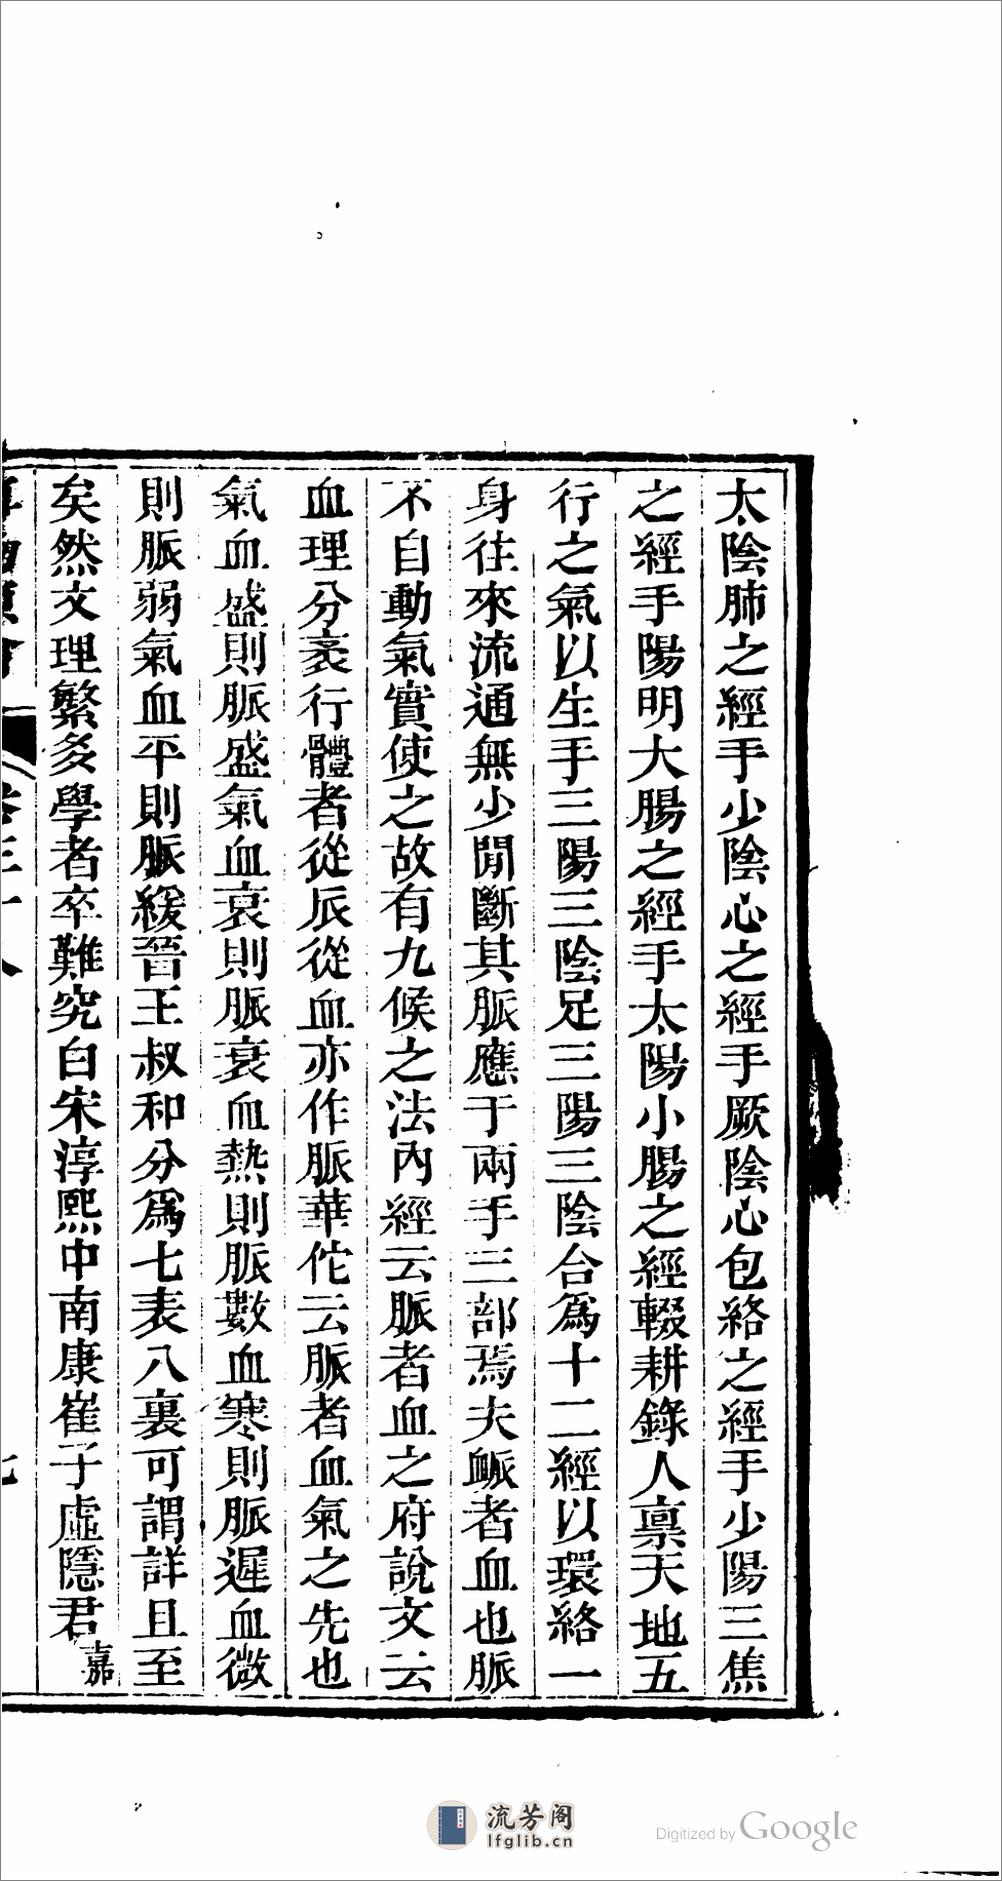 太陰肺之經手少陰心之經手厥陰心包絡之經手少陽三焦
之經手陽明大腸之經手太陽小腸之經輟耕錄人禀天地五
行之氣以生手三陽三陰足三陽三陰合爲十二經以環絡一
身往來流通無少閒斷其脈應于兩手三部焉夫衇者血也脈
不自動氣實使之故有九候之法內經云脈者血之府說文云
血理分袤行體者從𠂢從血亦作脈華佗云脈者血氣之先也
氣血盛則脈盛氣血衰則脈衰血熱則脈數血寒則脈遲血微
則脈弱氣血平則脈緩晉王叔和分爲七表八裏可謂詳且至
矣然文理繁多學者卒難究白宋淳熙中南康崔子虛隱君嘉
卷三十八
七
流芳阁
lfglib.cn
Digitized by Google